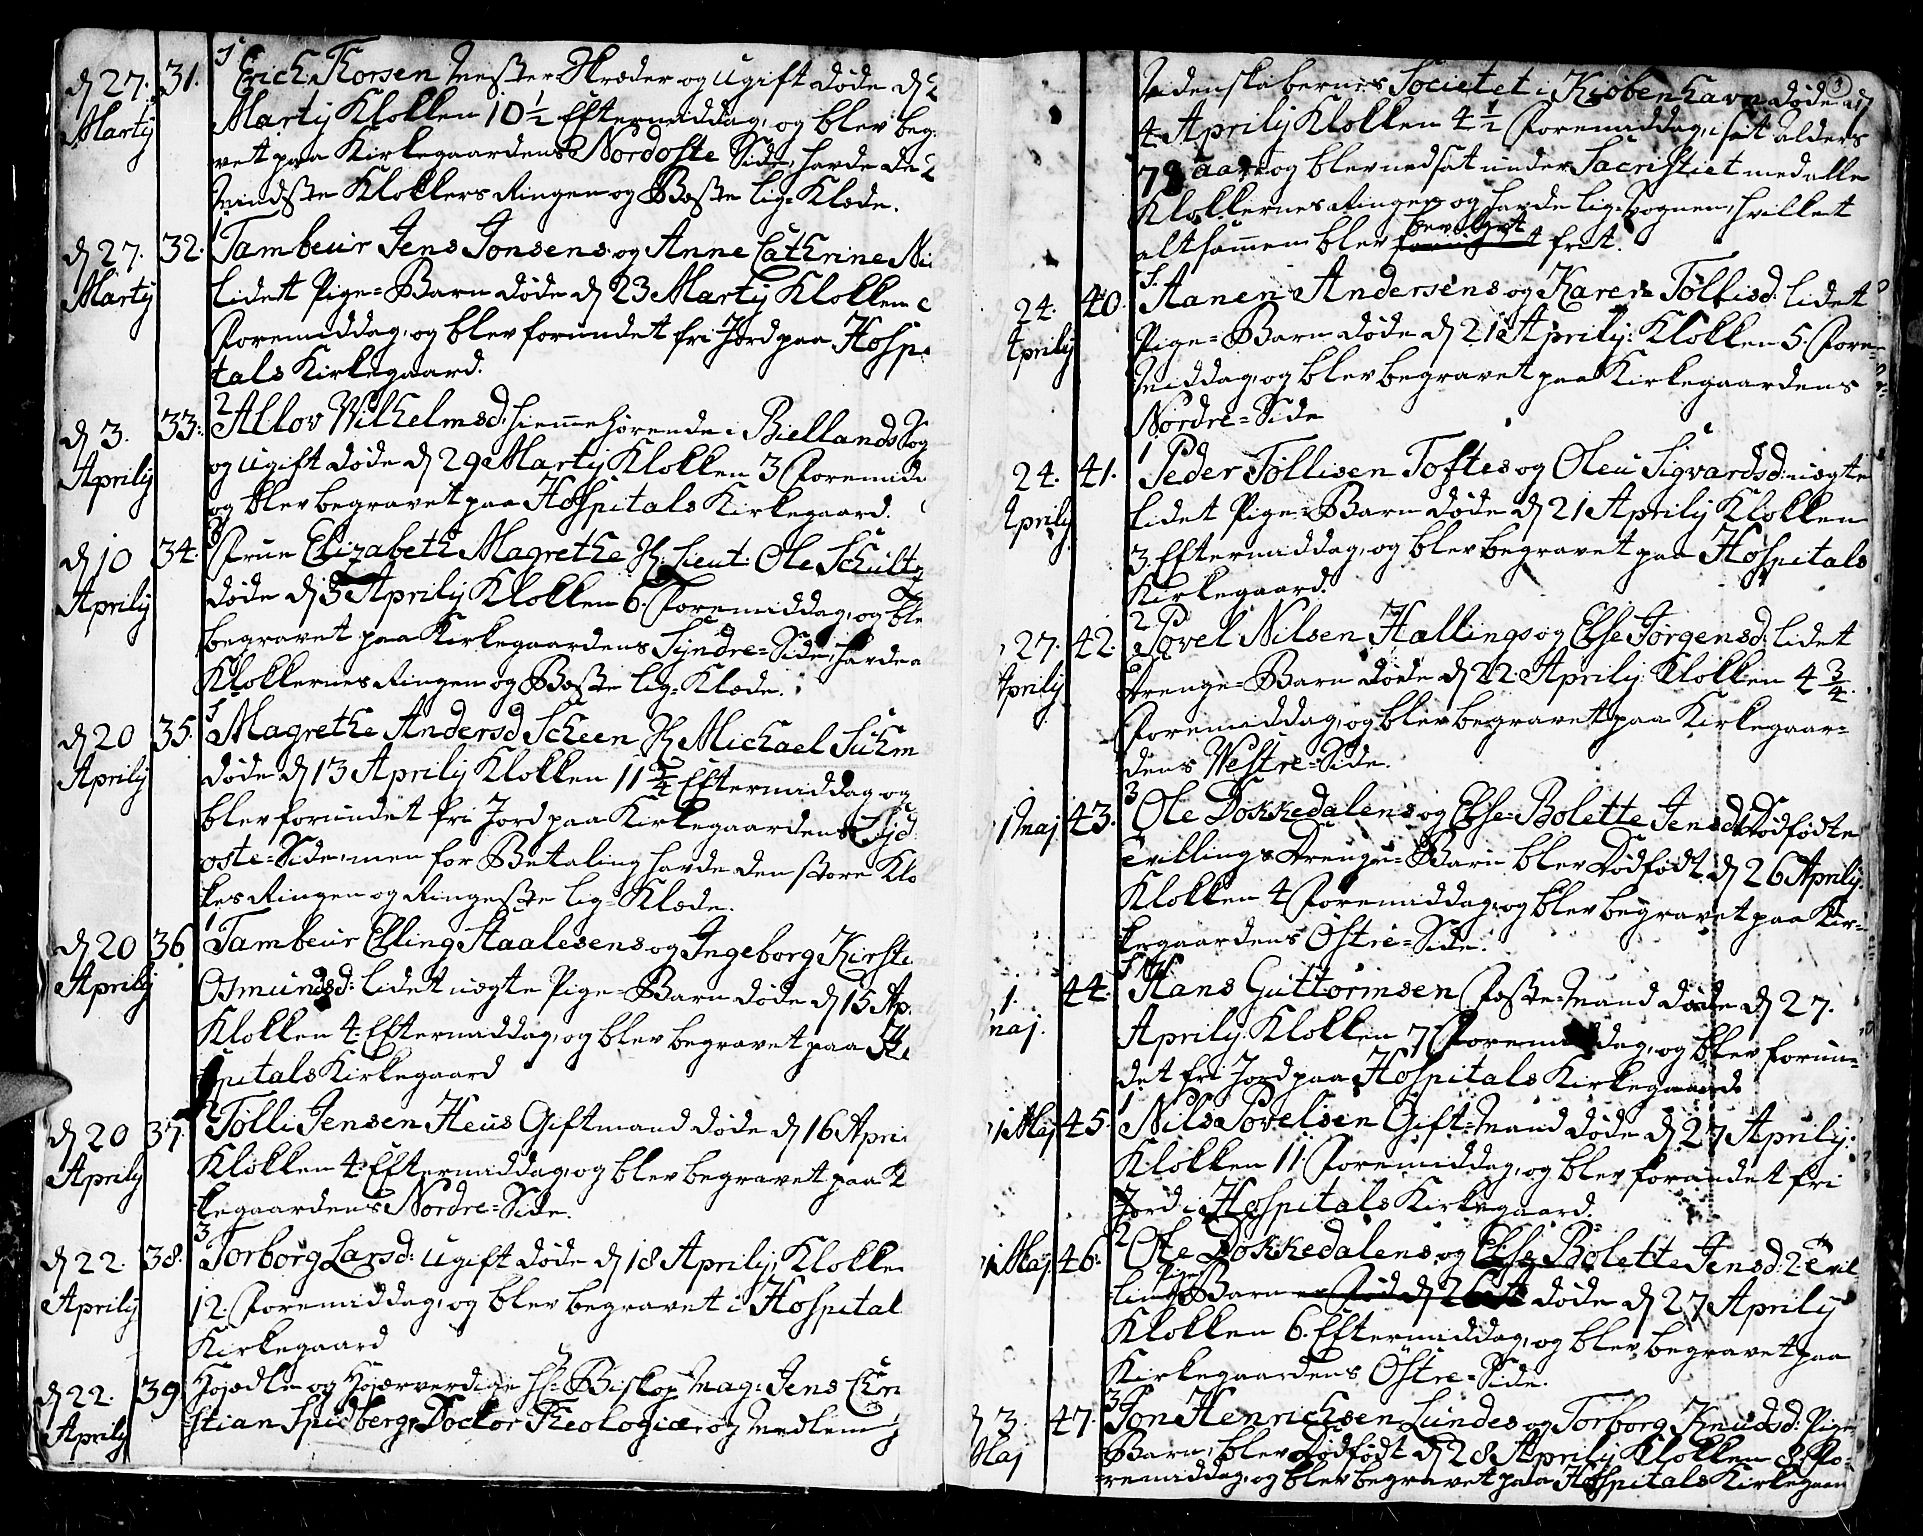 d 27. Martij 31. Erich Thorsen Mester-Skræder og Ugift døde d 2
Martij Klokken 10 1/2 Eftermiddag, og blev beg-
vet paa Kirkegaardens Nordoste Side, havde de 2
Mindste Klokkers Ringen og Beste Lig-Klæde.
d 27. Martij 32. Tambeur Jens Jonsens og Anne Cathrine Ni
lidet Pige-Barn døde d 23 Martij Klokken
Foremiddag, og blev forundet fri Jord paa Hosp
tals Kirkegaard.
d 3. Aprilij 33. Allov Wilhelmsd: hiemmehørende i Biellands Sog
og Ugift døde d 29 Martij Klokken 3 Foremid
og blev begravet paa Hospitals Kirkegaard.
d 10 Aprilij 34. Frue Elizabeth Magrethe H: Lieut: Ole Schults
døde d 5 Aprilij Klokken 6. Foremiddag, og ble
begravet paa Kirkegaardens Syndre-Side, havde a
Klokkernes Ringen og Beste Lig-Klæde.
d 20 Aprilij 35. Magrethe Andersd Scheen H: Michael Suhm
døde d 13 Aprilij Klokken 11 3/4 Eftermiddag og
blev forundet fri Jord paa Kirkegaardens Syd
oste-Side, men for Betaling havde den store Klo
kes Ringen og Ringeste Lig-Klæde.
d 20 Aprilij 36. Tambeur Elling Staalesens og Ingeborg Kirsti
Osmundsd: lidet uægte Pige-Barn døde d 15 Ap
Klokken 4. Eftermiddag, og blev begravet paa Ho
spitals Kirkegaard
d 20 Aprilij 37. Tølli Jensen Heus Giftmand døde d 16 Apri
Klokken 4. Eftermiddag, og blev begravet paa K
kegaardens Nordre-Side.
d 22. Aprilij 38. Torborg Larsd: Ugift døde d 18 Aprilij Klokke
12. Foremiddag, og blev begravet i Hospital
Kirkegaard
d 22. Aprilij 39 Højædle og Højærverdige Hr. Biskop Mag: Jens Chri
stian Spidberg, Doctor Theologiæ, og Medlem
3
Videnskabernes Societet i Kiøbenhavn døde d
4 Aprilij Klokken 4 1/2 Foremiddag, i sit alders
aar og blev nedsat under Sacristiet med alle
Klokkernes Ringen og havde Lig-Vognen, hvilket
altsammen blev bevilget frit.
24. Aprilij 40. Aanen Andersens og Karen Tøllisd: lidet
Pige-Barn døde d 21 Aprilij: Klokken 5. Fore-
middag, og blev begravet paa Kirkegaardens
Nordre-Side
24. Aprilij 41. Peder Tøllisen Toftes og Oleu Sigvardsd: uægte
lidet Pige-Barn døde d 21 Aprilij Klokken
3. Eftermiddag, og blev begravet paa Hospitals
Kirkegaard.
27. Aprilij 42. Povel Nilsen Hallings og Else Jørgensd: lidet
Drenge-Barn døde d 22 Aprilij Klokken 4 3/4.
Foremiddag, og blev begravet paa Kirkegaar-
dens Westre-Side.
1 Maj 43. Ole Dokkedalens og Else-Bolette Jensd: Dødfødte
Tvillings Drenge-Barn blev Dødfødt d 26 Aprilij
Klokken 4 Foremiddag, og blev begravet paa Kir-
kegaardens Østre-Side.
1. Maj. 44. Hans Guttormsen Poste-Mand døde d 27.
Aprilij Klokken 7 Foremiddag, og blev forun-
det fri Jord paa Hospitals Kirkegaard
1 Maj 45. Nils Povelsen Gift-Mand døde d 27 Aprilij
Klokken 11 Foremiddag, og blev forundet fri
Jord i Hospitals Kirkegaard.
1 Maj 46. Ole Dokkedalens og Else Bolette Jensd: 2. Tvil
lings Barn er Fød d 26 døde d 27 Aprilij
Klokken 6. Eftermiddag, og blev begravet paa
Kirkegaardens Østre-Side.
3. Maj 47. Jon Henrichsen Lundes og Torborg Knudsd: Pige-
Barn, blev Dødfødt d 28 Aprilij Klokken 8. Fo-
remiddag, og blev begravet paa Hospitals Kirkegaar